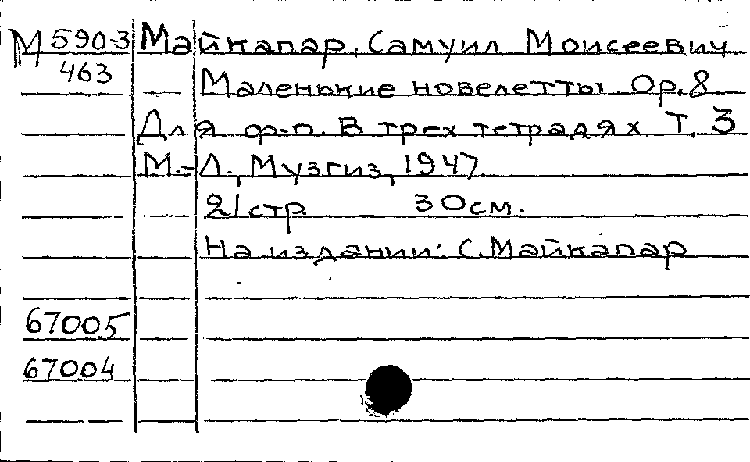 М 590-3 Майкапар, Самуил Моисеевич
463 Маленькие новелетты Op. 8
Для ф-п. В трех тетрадях Т. 3
М.-Л., Музгиз, 1947.
21 стр 30 см.
На издании: С. Майкапар
67005
67004